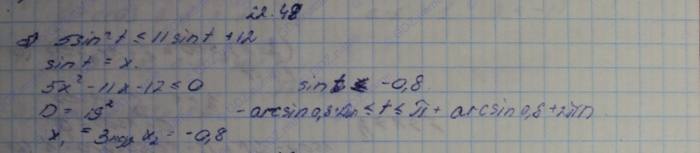 22.48
б) 5sin²t ≤ 11sint + 12
sint = x
5x² - 11x - 12 ≤ 0
D = 19²
x₁ = 3 x₂ = -0,8
sint ≥ -0,8
-arcsin0,8+2πn ≤ t ≤ π + arcsin0,8 + 2πn